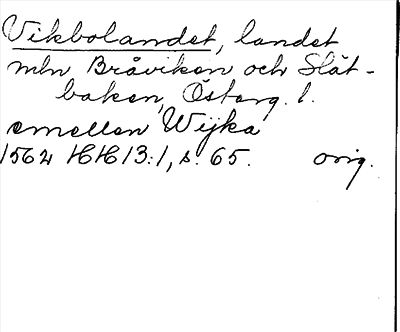 Vikbolandet, landet
mln Bråviken och Slät-
baken, Österg. l.
emellan Wijka
1562 HH 13:1, s. 65. orig.